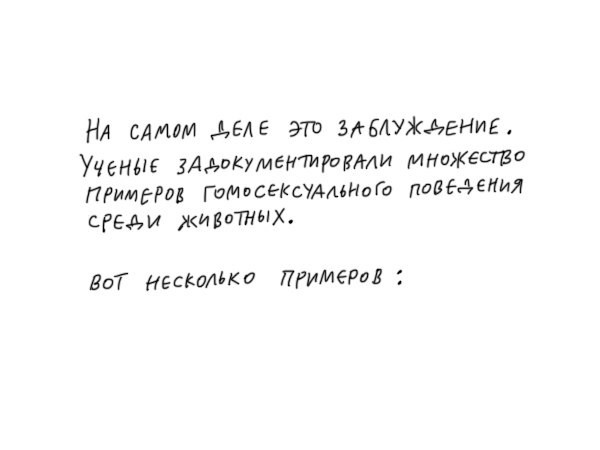 На самом деле это заблуждение.
Ученые задокументировали множество
примеров гомосексуального поведения
среди животных.
Вот несколько примеров: